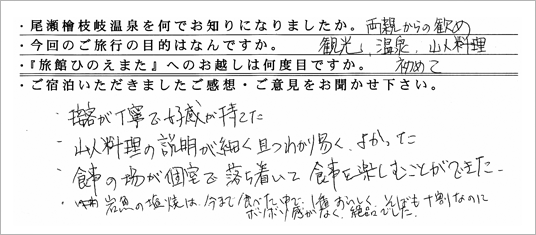 ・尾瀬檜枝岐温泉を何でお知りになりましたか。両親からの歓め
・今回のご旅行の目的はなんですか。 観光、温泉、山人料理
・『旅館ひのえまた』へのお越しは何度目ですか。 初めて
・ご宿泊いただきましたご感想・ご意見をお聞かせ下さい。
・接客が丁寧で好感が持てた
・山人料理の説明が細く且つわかり易く、よかった
・食事の場が個室で落ち着いて食事を楽しむことができた。
・岩魚の塩焼は、今まで食べた中で1番おいしく、そばも十割なのに
ボソボソ感がなく、絶品でした。